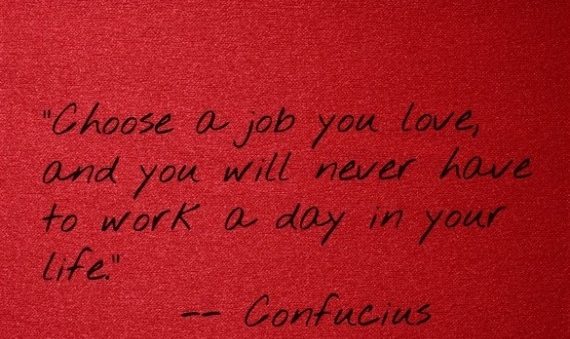 "Choose a job you love,
and you will never have
to work a day in your
life."
-- Confucius